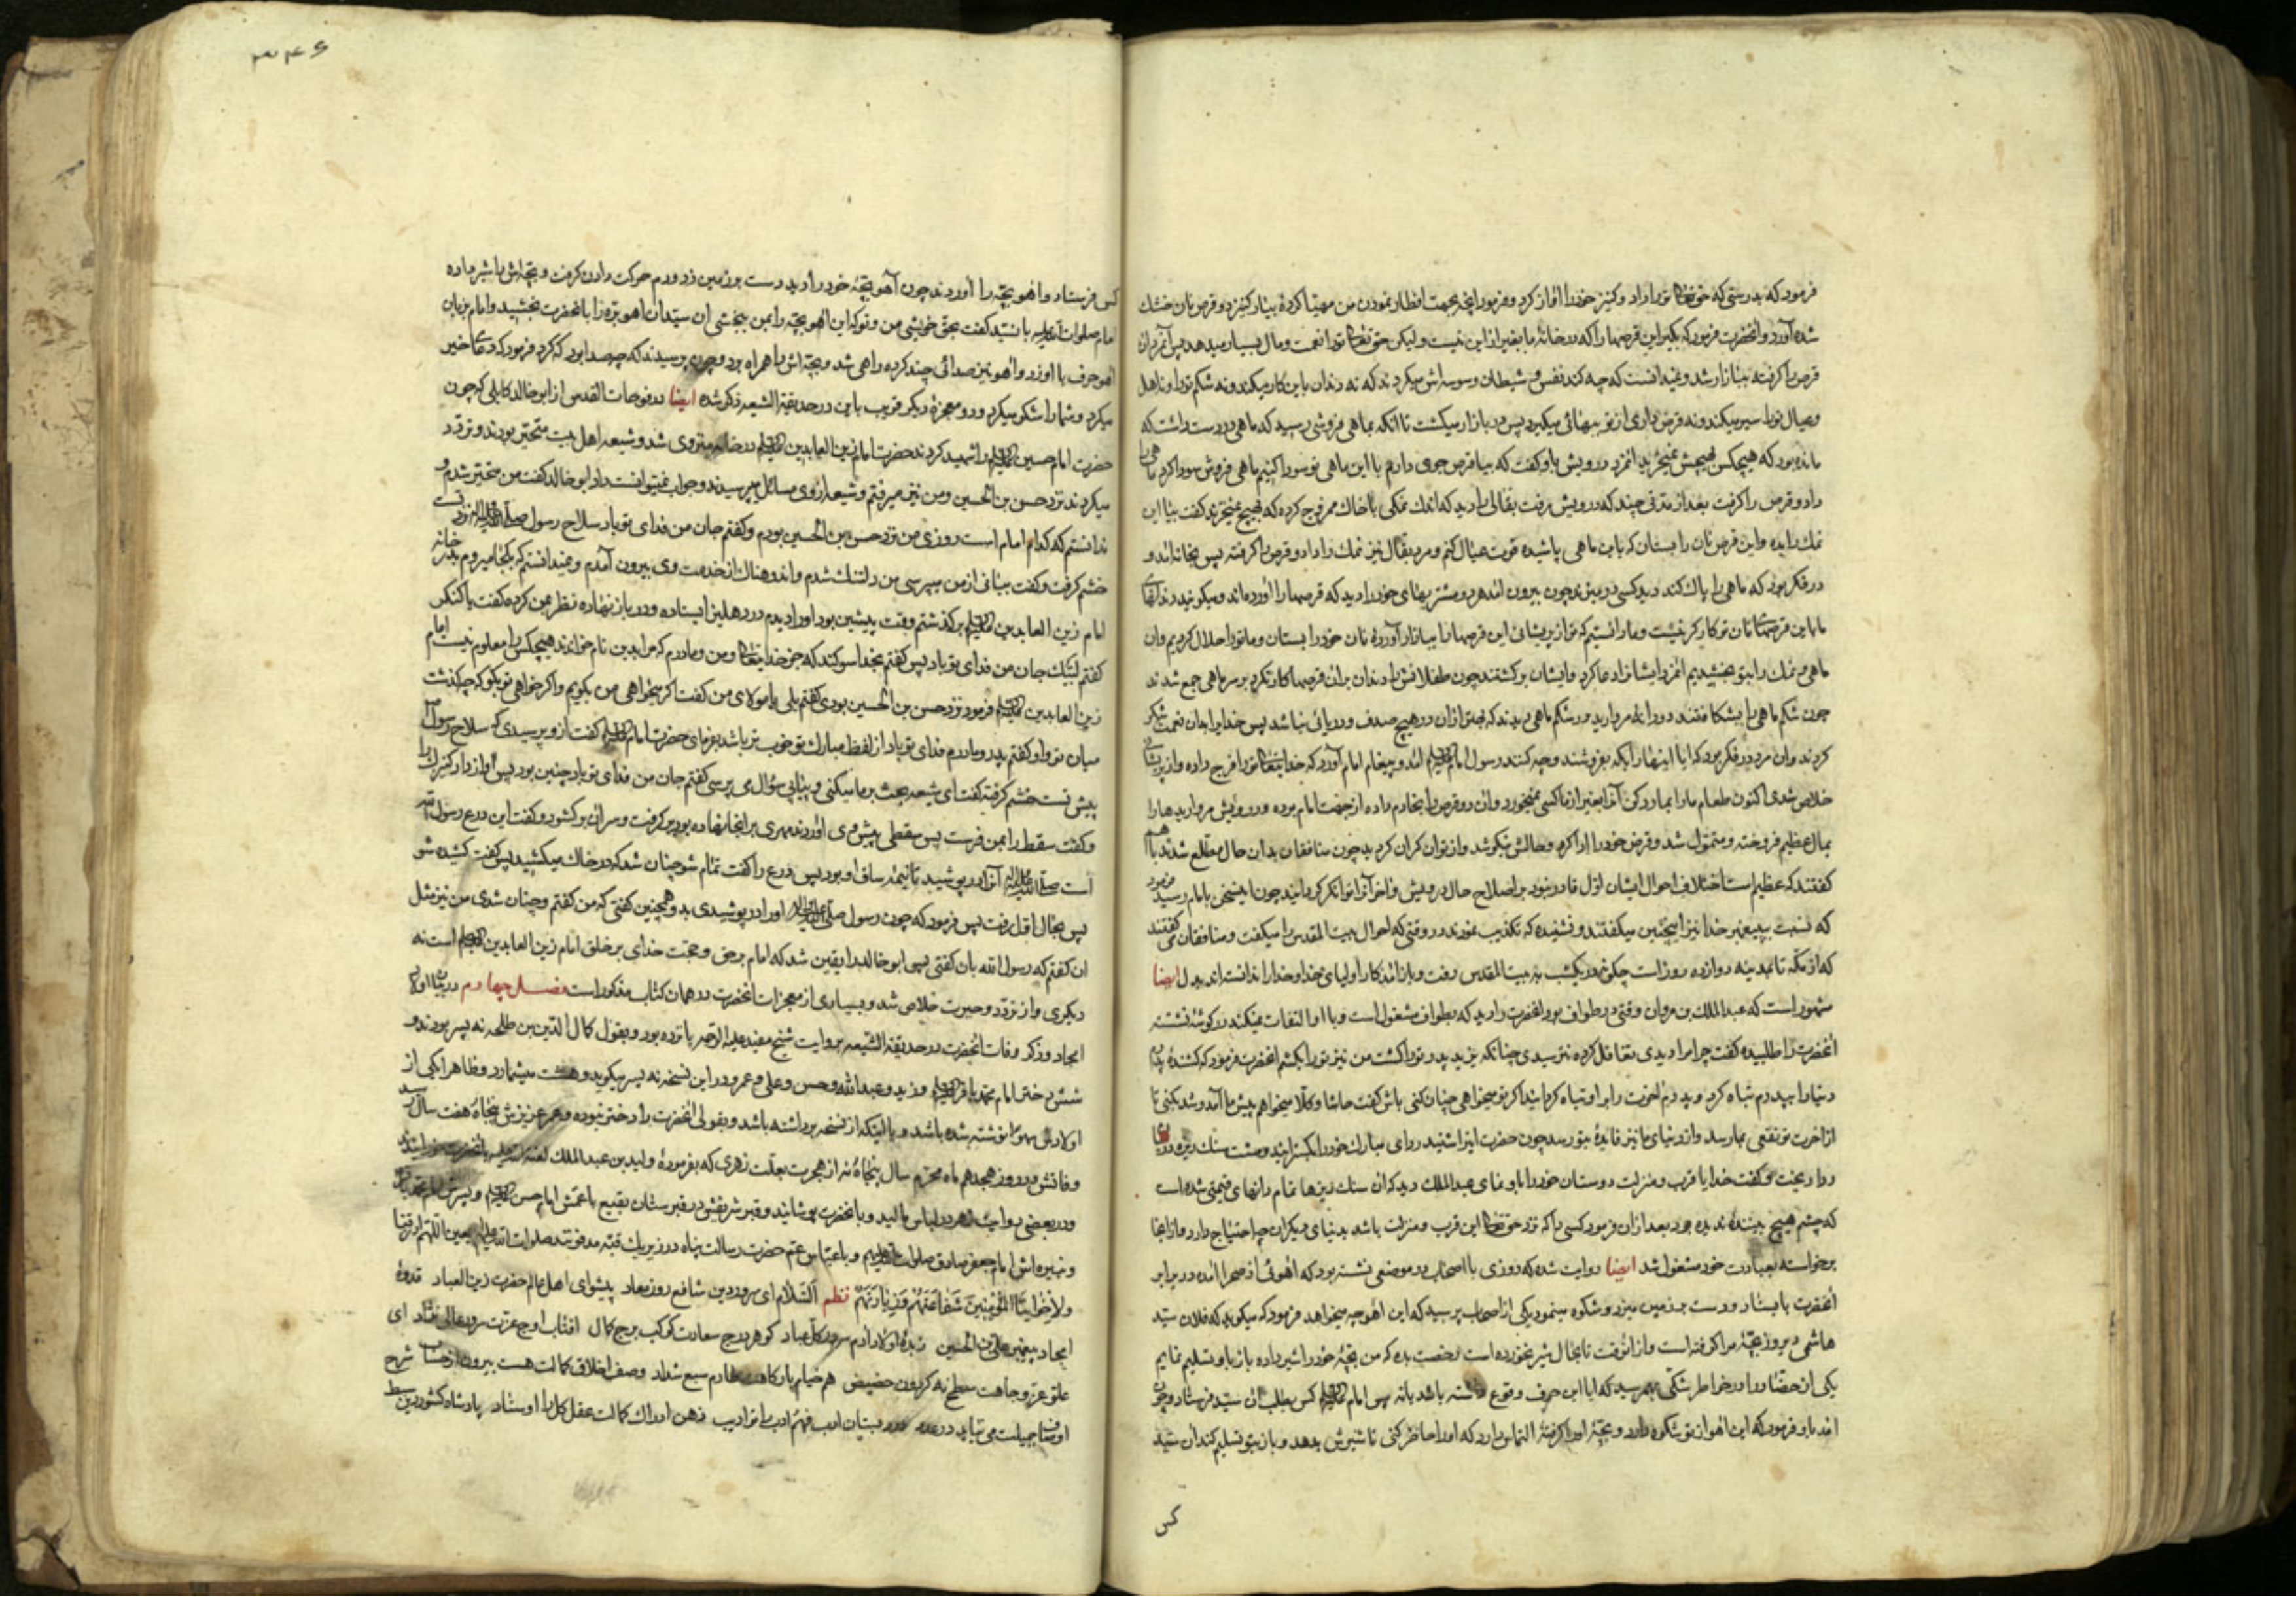 فرمود که بدرستی که حق تعالی ترا داد و کنیز خود را آواز کرد و فرمود آنچه بجهت افطار نمودن من مهیا کردهٔ بیار کنیز دو قرص نان خشک
شده آورد و آنحضرت فرمود که بگیر این قرصها را که در خانهٔ ما بغیر از این نیست ولیکن حق تعالی ترا نعمت و مال بسیار میدهد پس آنمرد آن
قرص را گرفته ببازار شد و نمیدانست که چه کند نفس و شیطان وسوسه اش میکردند که نه دندان باین کار میکند و نه شکم تو را و نه اهل
و عیال تو را سیر میکند و نه قرض داری از تو ببهائی میگیرد پس در بازار میگشت تا آنکه بماهی فروشی رسید که ماهی در دست داشت که
مانده بود که هیچکس بهیچش نمیخرید آنمرد درویش باو گفت که بیا قرص جوی دارم با این ماهی تو سودا کنیم ماهی فروش سودا کرد ماهی را
داد و قرص را گرفت بعد از مدتی چند که درویش برفت بقالی را دید که اندک نمکی با خاک ممزوج کرده که بهیچ نمیخرند گفت بیا این
نمک را بده و این قرص نان را بستان که باین ماهی پاشیده قوت عیال کنم و مرد بقال نیز نمک را داد و قرص را گرفته پس بخانه آمد و
در فکر بود که ماهی را پاک کند دید کسی در میزند چون بیرون آمد هر دو مشتریهای خود را دید که قرصها را آورده اند و میگویند دندانهای
ما باین قرصهای نان تو کارگر نیست و ما دانستیم که تو از پریشانی این قرصها را ببازار آوردهٔ نان خود را بستان و ما تو را حلال کردیم و آن
ماهی و نمک را بتو بخشیدیم آنمرد ایشانرا دعا کرد و ایشان برگشتند چون طفلانش را دندان بر آن قرصها کار نکرد بر سر ماهی جمع شدند
چون شکم ماهی را بشکافتند دو دانه مروارید در شکم ماهی دیدند که بهتر از آن در هیچ صدف و دریائی نباشد پس خدایرا بدان نعمت شکر
کردند و آن مرد در فکر بود که آیا اینها را بکه بفروشند و چه کنند رسول امام علیه السلام آمد و پیغام امام آورد که خدایتعالی ترا فرج داده و از پریشانی
خلاص شدی اکنون طعام ما را بما رد کن که آنرا بغیر از ما کسی نمیخورد و آن دو قرص را بخادم داده از جهت امام برده و درویش مرواریدها را
بمال عظیم فروخته و متمول شد و قرض خود را ادا کرد و حالش نیکو شد و از توانگران گردید چون منافقان بدان حال مطلع شدند باهم
گفتند که عظیم است اختلاف احوال ایشان اول قادر نبود بر اصلاح حال درویش و آخر آنرا توانگر گردانید چون اینسخن بامام رسید فرمود
که نسبت به پیغمبر خدا نیز اینچنین میگفتند و نشنیده که تکذیب نمودند در وقتی که احوال بیت المقدس را میگفت و منافقان می گفتند
که از مکه تا مدینه دوازده روز است چگونه در یکشب به بیت المقدس رفت و باز آمد کار اولیای خدا و خدا را ندانسته اند بدل ایضا
مشهور است که عبد الملک بن مروان وقتی در طواف بود آنحضرت را دید که بطواف مشغول است و با او التفات نمیکند در گوشهٔ نشسته
آنحضرت را طلبیده گفت چرا مرا دیدی تغافل کرده نترسیدی چنانکه یزید پدر تو را کشت من نیز تو را بکشم آنحضرت فرمود که کشندهٔ پدرم
دنیا را بپدرم تباه کرد و پدرم آخرت را بر او تباه گردانید اگر تو میخواهی چنان کنی باش گفت حاشا و کلا میخواهم پیش ما آمد و شد بکنی تا
از آخرت تو نفعی بما رسد و از دنیای ما نیز فایدهٔ بتو رسد چون حضرت اینرا شنید ردای مبارک خود را بگسترانید و مشت سنک ریزه در آن
ردا ریخت و گفت خدایا قرب و منزلت دوستان خود را باو نمای عبد الملک دید که آن سنک ریزها تمام دانهای قیمتی شده است
که چشم هیچ بینندهٔ ندیده بود بعد از آن فرمود کسی را که نزد حق تعالی این قرب و منزلت باشد بدنیای دیگران چه احتیاج دارد و از آنجا
برخواسته بعبادت خود مشغول شد ایضا روایت شده که روزی با اصحاب در موضعی نشسته بود که آهوئی از صحرا آمده در برابر
آنحضرت بایستاد و دست بر زمین میزد و شکوه مینمود یکی از اصحاب پرسید که این آهو چه میخواهد فرمود که میگوید که فلان سید
هاشمی دیروز بچهٔ مرا گرفته است و از آنوقت تا بحال شیر نخورده است رخصت بده که من بچهٔ خود را شیر داده باز باو تسلیم نمایم
یکی از حضار را در خاطر شکی بهم رسید که آیا این حرف وقوع داشته باشد یا نه پس امام علیه السلام کس بطلب آن سید فرستاد و چون
آمد باو فرمود که این آهو از تو شکوه دارد و بچهٔ او را گرفتهٔ التماس دارد که او را حاضر کنی تا شیرش بدهد و باز بتو تسلیم کند آن سید
کس
۳۴۶
کس فرستاد و آهو بچه را آوردند چون آهو بچهٔ خود را دید دست بر زمین زد و دم حرکت دادن گرفت و بچه اش را شیر داده
امام صلوات الله علیه با سید گفت بحق خویشی من و تو که این آهو بچه را بمن ببخشی آن سید آن آهو بره را بآنحضرت بخشید و امام بزبان
آهو حرف با او زد و آهو نیز صدائی چند کرده راهی شد و بچه اش را همراه برد و چون پرسیدند که چه صدا بود که کرد فرمود که دعای خیر
میکرد و شما را شکر میکرد و دو معجزهٔ دیگر قریب باین در حدیقة الشیعه ذکر شده ایضا در فتوحات القدس از ابو خالد کابلی که چون
حضرت امام حسین علیه السلام را شهید کردند حضرت امام زین العابدین علیه السلام در خانه منزوی شد و شیعه اهل بیت متحیر بودند و تردد
میکردند نزد حسن بن الحسین و من نیز میرفتم و شیعه از وی مسائل میپرسیدند و جواب نمیتوانست داد ابو خالد گفت من متحیر شدم و
ندانستم که کدام امام است روزی من نزد حسن بن الحسین بودم و گفتم جان من فدای تو باد سلاح رسول صلی الله علیه و آله نزد تست
خشم گرفت و گفت بیانی از من میپرسی من دلتنک شدم و اندوهناک از خدمت وی بیرون آمدم و نمیدانستم که بکجا میروم بدر خانه
امام زین العابدین علیه السلام برگذشتم وقت پیشین بود او را دیدم در دهلیز ایستاده و در باز نهاده نظر بمن کرده گفت یا کنکر
گفتم لبیک جان من فدای تو باد پس گفتم بخدا سوگند که جز خدایتعالی و من و مادرم که مرا بدین نام خواند هیچکس را معلوم نیست امام
زین العابدین علیه السلام فرمود نزد حسن بن الحسین بودی گفتم بلی یا مولای من گفت اگر میخواهی من بگویم و اگر خواهی تو بگو که چه گذشت
میان تو و او گفتم پدر و مادرم فدای تو باد از لفظ مبارک تو خوب تر باشد بفرمای حضرت امام علیه السلام گفت از و پرسیدی که سلاح رسول
پیش تست خشم گرفته گفت ای شیعه بحث بر ما میکنی و بیاپی سؤال می پرسی گفتم جان من فدای تو باد چنین بود پس آواز داد کنیزک را
و گفت سقط را بمن فرست پس سقطی پیش وی آوردند مهری بر آنجا نهاده بود بر گرفت و سر آن بر گشود و گفت این درع رسول الله
است صلی الله علیه و آله آنرا در پوشید تا نیمهٔ ساق او بود پس درع را گفت تمام شو چنان شد که در خاک میکشید پس گفت کشیده شو
پس بحال اول رفت پس فرمود که چون رسول صلی الله علیه و آله او را در پوشیدی بدو همچنین گفتی که من گفتم و چنان شدی من نیز مثل
آن گفتم که رسول الله بان گفتی پس ابو خالد را یقین شد که امام بر حق و حجت خدای بر خلق امام زین العابدین علیه السلام است نه
دیگری و از تردد و حیرت خلاص شد و بسیاری از معجزات آنحضرت در همان کتاب مذکور است فصل چهارم در بیان اولاد
امجاد و ذکر وفات آنحضرت در حدیقة الشیعه بروایت شیخ مفید علیه الرحمه پانزده بود و بقول کمال الدین بن طلحه نه پسر بودند و
شش دختر امام محمد باقر علیه السلام و زید و عبد الله و حسن و علی و عمر و در این نسخه نه پسر میگوید و هشت میشمارد و ظاهرا یکی از
اولادش سهوا نوشته شده باشد و یا اینکه از نسخه بر داشته باشد و بقولی آنحضرت را دختر نبوده و عمر عزیزش پنجاه هفت سال رسید
وفاتش در روز هجدهم ماه محرم سال پنجاه نه از هجرت بعلت زهری که بفرمودهٔ ولید بن عبد الملک
و در بعضی روایت زهر در لباس مالید و بآنحضرت پوشانیدند و قبر شریفش در قبرستان بقیع با عمش امام حسن علیه السلام و پسرش امام محمد باقر
و نبیره اش امام جعفر صادق صلوات الله علیهم و با عباس عم حضرت رسالت پناه در زیر یک قبه مدفونند صلوات الله علیهم اجمعین اللهم ارزقنا
ولاخواننا المؤمنین شفاعتهم و زیارتهم نظم السلام ای سرور دین شافع روز معاد پیشوای اهل عالم حضرت زین العباد قدوهٔ
امجاد پیغمبر علی بن الحسین زبدهٔ اولاد آدم سرور کل عباد گوهر درج سعادت کوکب برج کمال آفتاب اوج عزت سرور عالی نژاد ای
علو عز و جاهت سطح نه گردون حضیض هم خیام بارگاهت طارم سبع شداد وصف اخلاق کمالت هست بیرون از حساب شرح
اوصاف جمیلت می نیاید در عدد در دبستان ادب فهم ادب را تو ادیب ذهن ادراک کمالت عقل کل را اوستاد پادشاه کشور دین